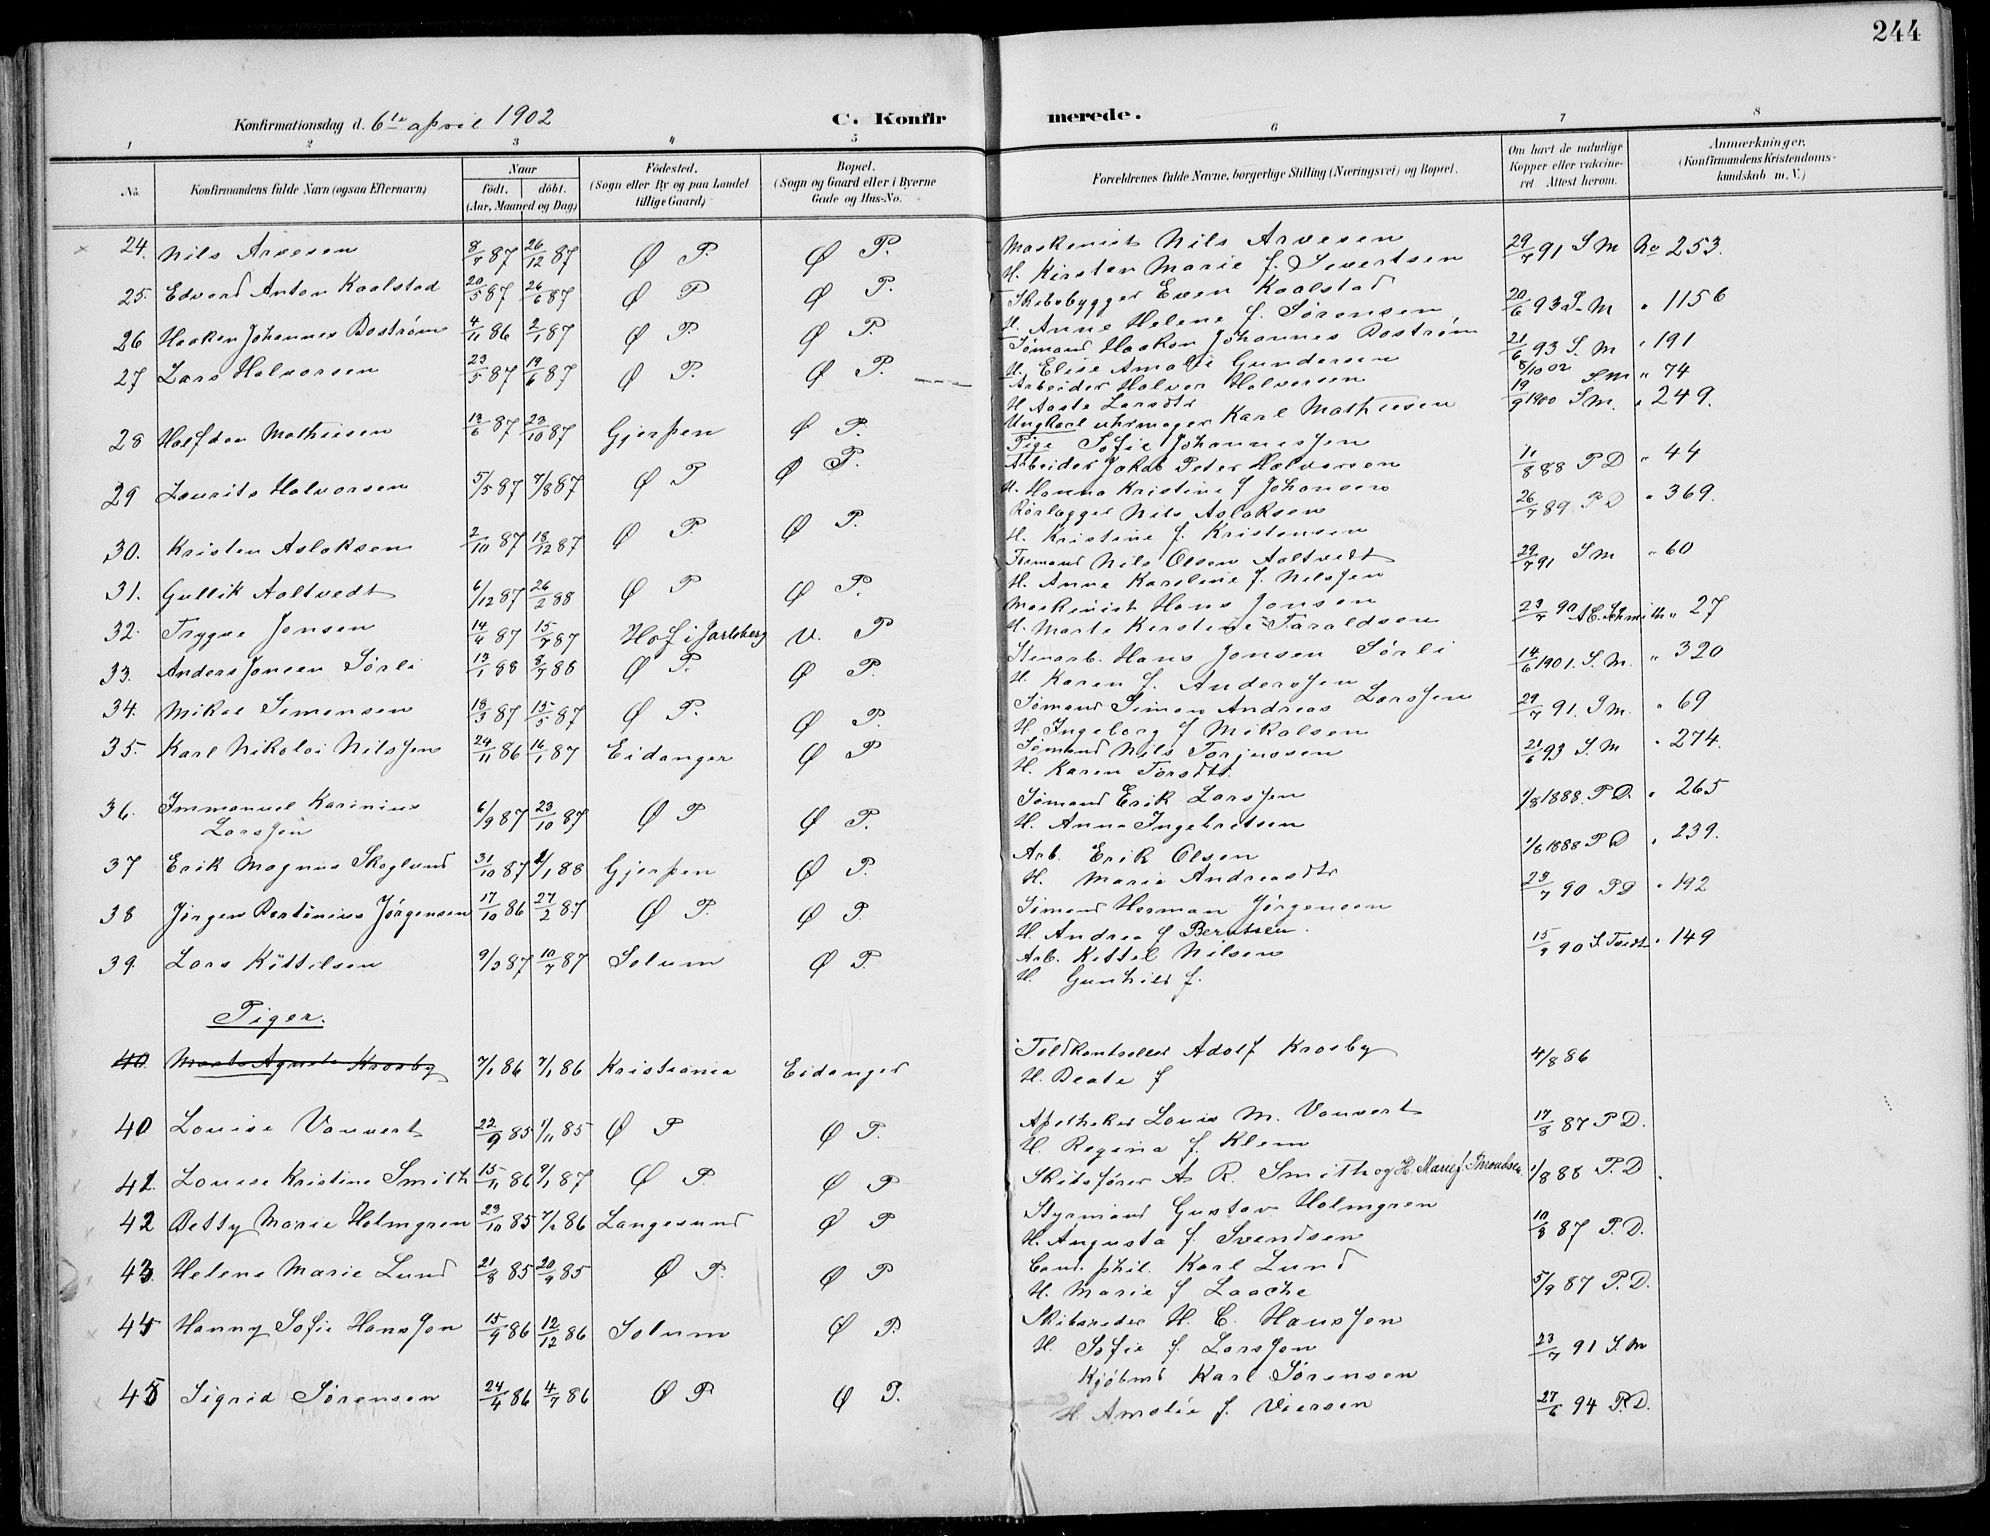 244
Konfirmationsdag d. 6te april 1902 C. Konfir merede.
1 2 3 4 5 6 7 8
No. Konfirmandens fulde Navn (ogsaa Efternavn) Naar født. døbt. (Aar, Maaned og Dag) Fødested. (Sogn eller By og paa Landet tillige Gaard) Bopæl. (Sogn og Gaard eller i Byerne Gade og Hus-No. Forældrenes fulde Navne, borgerlige Stilling (Næringsvei) og Bopæl. Om havt de naturlige Kopper eller vaccineret. Attest herom. Anmærkninger. (Konfirmandens Kristendomskundskab m. V.)
24. Nils Arvesen 8/7 87 26/12 87 Ø P. Ø P. Maskinist Nils Arvesen 29/7 91 S M No 253.
H. Kirsten Marie f. Sivertsen
25. Edvard Anton Kaalstad 20/5 87 26/6 87 Ø P Ø P. Skibsbygger Even Kaalstad 20/6 93 S. M " 1156
H. Anne Helene f. Sørensen
26 Haaken Johannes Bostrøm 4/11 86 2/1 87 Ø P. Ø P. Sømand Haakon Johannes Bostrøm 21/6 93 S. M " 191
H. Elise Amalie Gundersen
27 Lars Halvorsen 23/5 87 19/6 87 Ø P. Ø P. Arbeider Halvor Halvorsen 8/10 02 S. M " 74
H. Aaste Larsdtr
28 Halfdan Mathisen 12/6 87 23/10 87 Gjerpen Ø P. Ungkarl uhrmager Karl Mathisen 19/9 1900 S M. " 249.
Pige Sofie Johannesen
29 Laurits Halvorsen 5/5 87 7/8 87 Ø P Ø P. Arbeider Jakob Peter Halvorsen 11/8 88 P D " 44
H. Hanna Kristine f Johansen
30. Kristen Aslaksen 2/10 87 18/12 87 Ø P. Ø P. Rørlægger Nils Aslaksen 26/7 89 P D " 369.
H. Kristine f. Kristensen
31. Gullik Aaltvedt 6/12 87 26/2 88 Ø P Ø P. Tømmand Nils Olsen Aaltvedt 29/7 91 S M " 60
H. Anne Karoline f. Nilssen
32. Trygve Jonsen 14/4 87 15/7 87 Hof i Jarlsberg V. P Maskinist Hans Jonsen 23/7 90 A C. Schmith " 27
H. Marte Kirstine Taraldsen
33. Anders Jonsen Sørli 13/1 88 8/7 88 Ø P. Ø P. Stenarb. Hans Jonsen Sørli 14/6 1901. S. M. " 320
H. Karen f. Anderssen
34. Mikal Simonsen 18/3 87 15/5 87 Ø P. Ø P. Sømand Simon Andreas Larssen 29/7 91. S M. " 69
H. Ingeborg f Mikalsen
35. Karl Nikolai Nilssen 24/11 86 16/1 87 Eidanger Ø P Sømand Nils Torjussen 21/6 93 S. M " 274.
H. Karen Torsdtr.
36. Immanuel Karinius 6/9 87 23/10 87 Ø P Ø P. Sømand Erik Larssen 1/8 1888. P D. " 265
Larssen H. Anna Ingebretsen
37 Erik Magnus Skoglund 31/10 87 1/1 88 Gjerpen Ø P. Arb. Erik Olsen 1/6 1888 P D " 239.
H. Marie Andreasdtr
38 Jørgen Bertinius Jørgensen 17/10 86 27/2 87 Ø P. Ø P. Sømand Herman Jørgensen 23/7 90 P D " 192
H. Andrea f Berntsen.
39. Lars Kittilsen 9/3 87 10/7 87 Solum Ø P. Arb. Kittel Nilsen 15/9 90 S. Tvedt " 149
H. Gunhild f.
Piger.
40 Marta Agnete Krosby 7/1 86 7/1 86 Kristiania Eidanger Toldkontrollør Adolf Krosby 4/8 86
H. Beate f
40 Louise Vauvert 22/9 85 1/11 85 Ø P Ø P. Apotheker Louis M. Vauvert 17/8 87 P D.
H. Regina f. Klem
41. Louise Kristine Smith 15/11 86 9/1 87 Ø P. Ø P Skibsfører A R. Smith og H. Marie f. Throndsen 1/8 88 P. D
42 Betty Marie Holmgren 23/10 85 7/2 86 Langesund Ø P Styrmand Gustav Holmgren 10/8 87 P. D.
H. Augusta f. Svendsen
43. Helene Marie Lund 21/8 85 20/9 85 Ø P. Ø P Cand. phil. Karl Lund 5/9 87 P. D.
H. Marie f Laache
44 Hanny Sofie Hanssen 15/9 86 12/12 86 Solum Ø P. Skibsreder H. C. Hanssen 23/7 91 S. M
H. Sofie f. Larssen
45 Sigrid Sørensen 24/4 86 4/7 86 Ø P Ø P. Kjøbmd Karl Sørensen 27/6 94 P. D.
H. Amalie f. Viersen